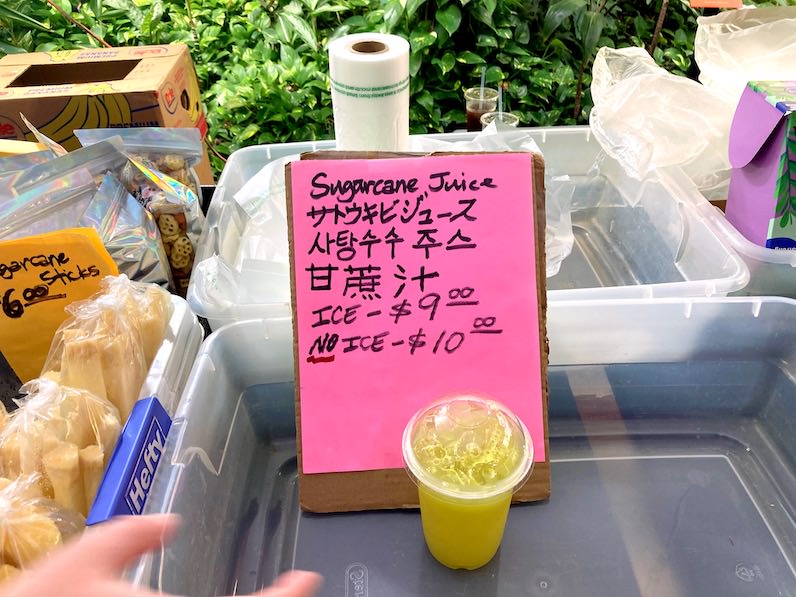 Sugarcane Juice
サトウキビジュース
사탕수수 주스
甘蔗汁
ICE - $9.00
NO ICE - $10.00
Sugarcane
Sticks
$6.00
Hefty
Dole
PREMIUM